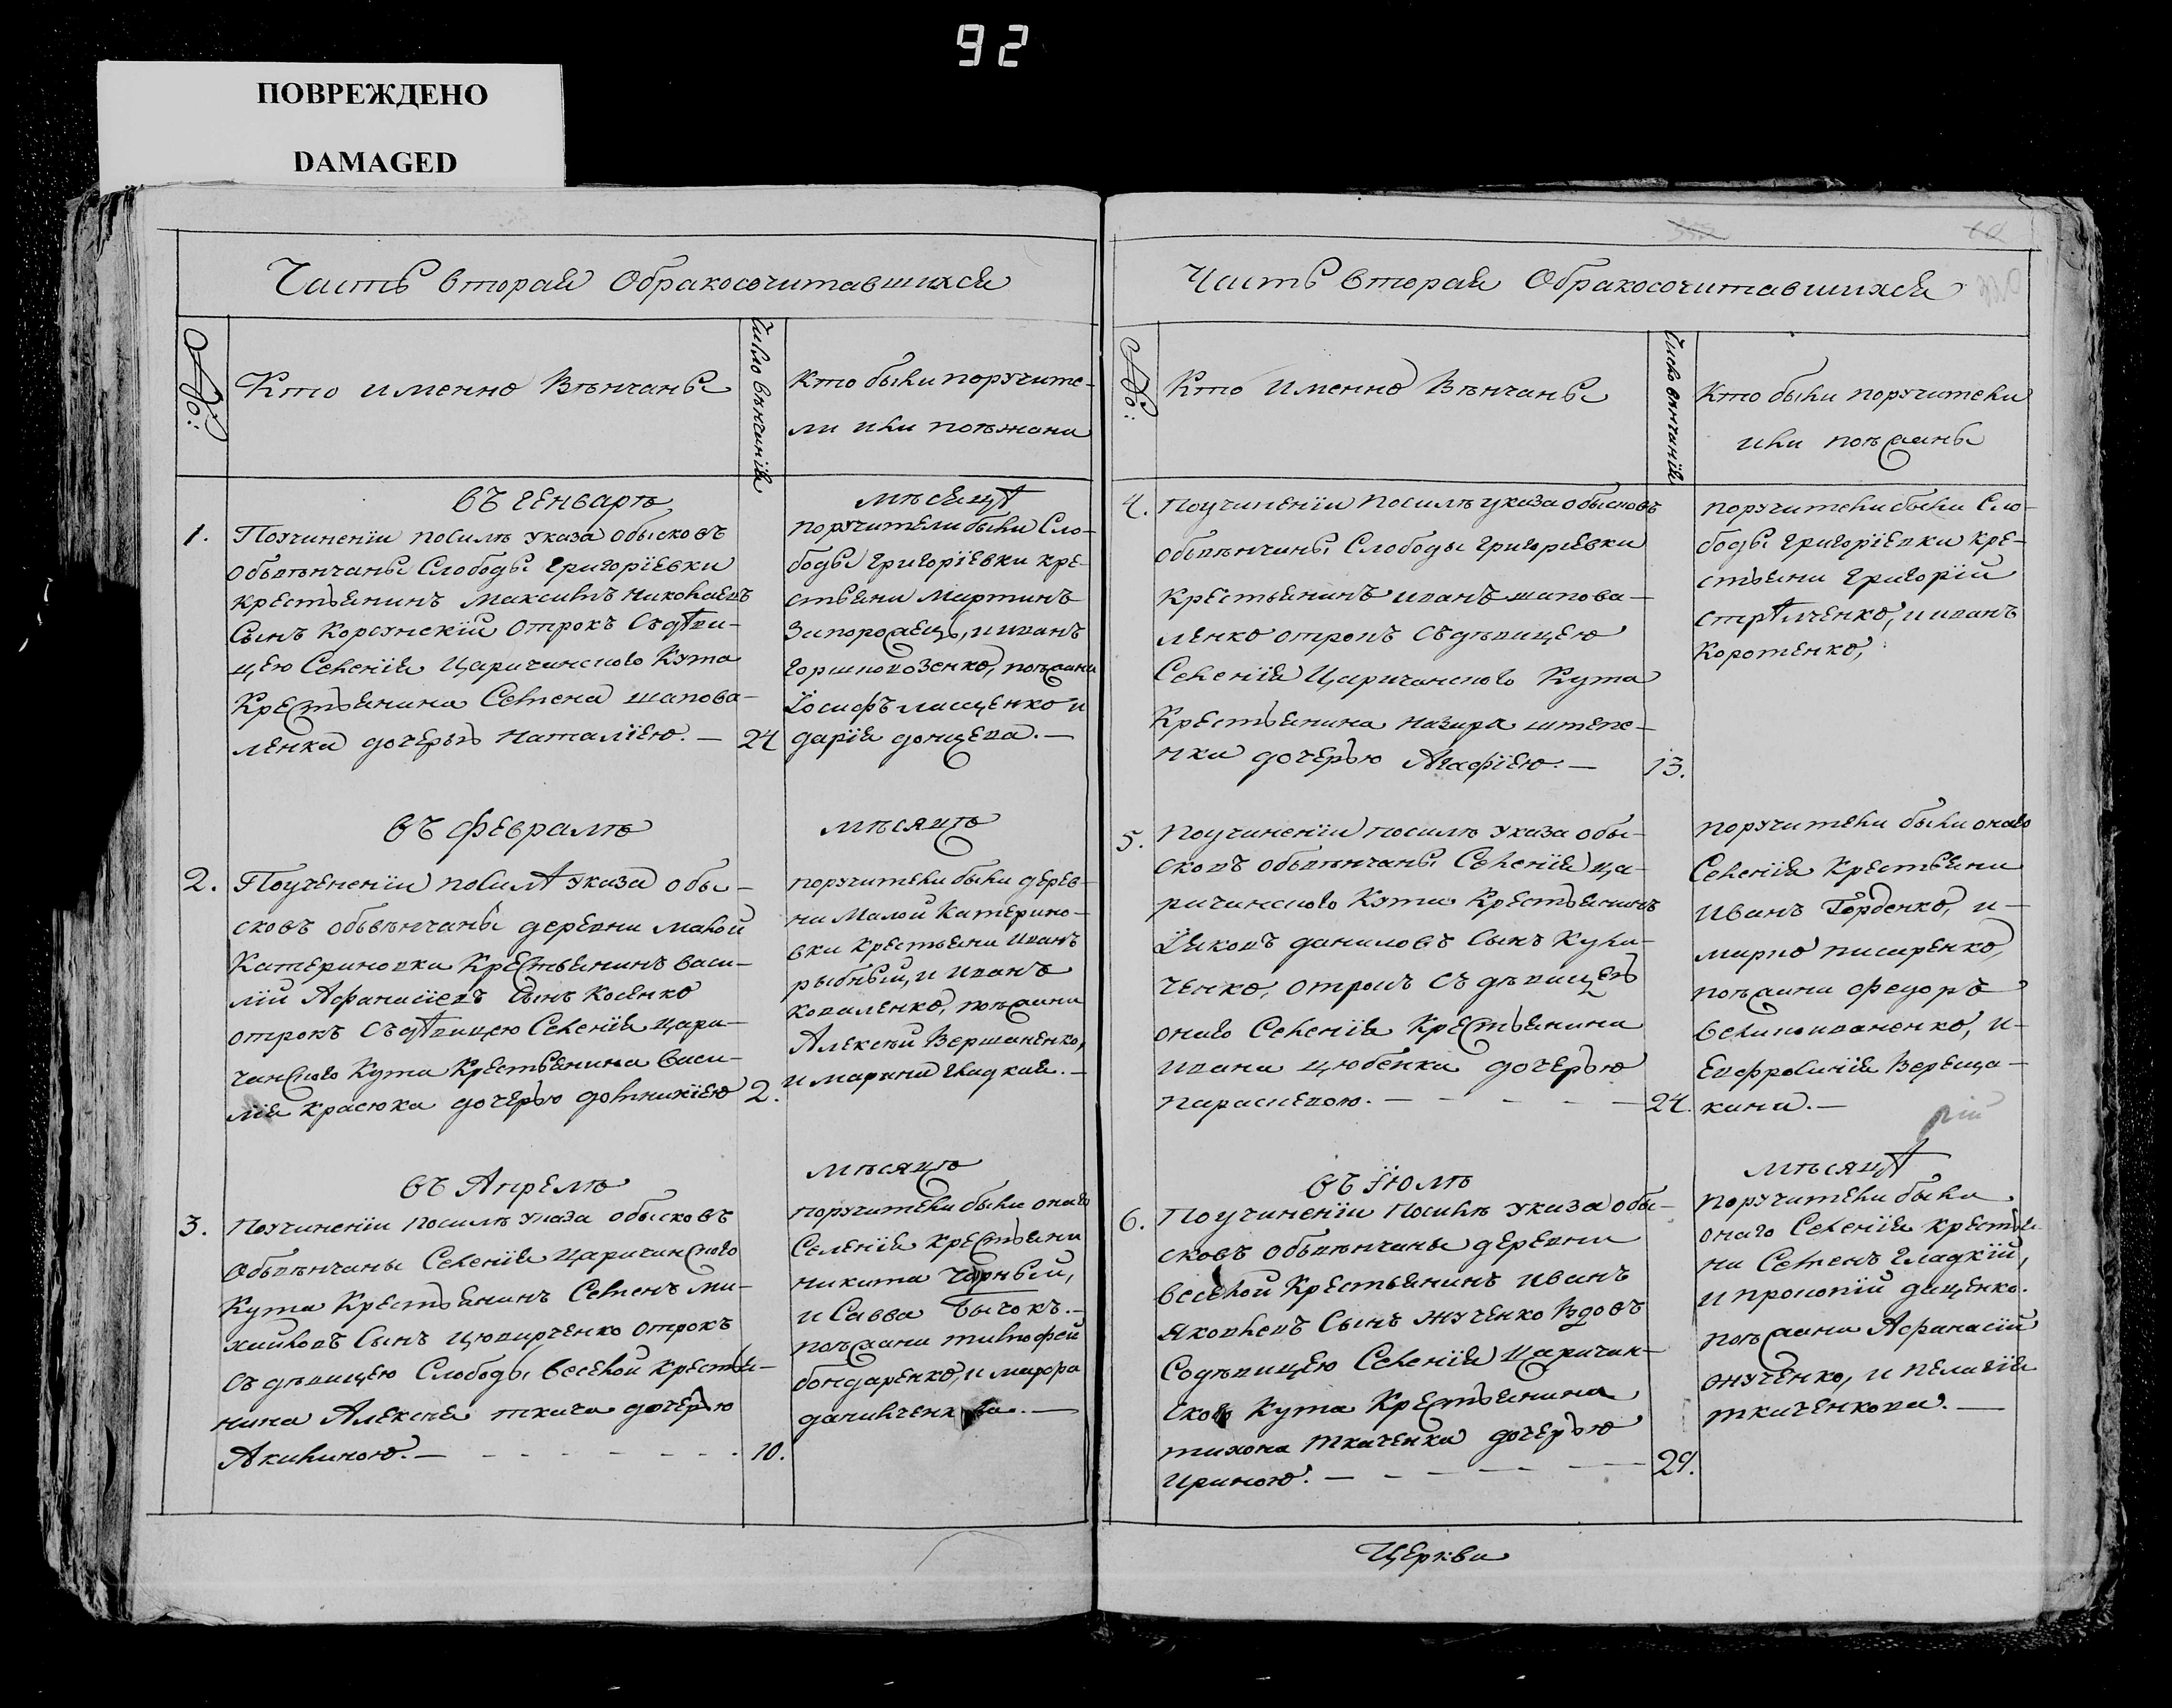 92
ПОВРЕЖДЕНО
DAMAGED
Часть вторая Обракосочитавшихся
№:
Кто именно Вѣнчаны
Число вѣнчанія
Кто были поручите-
ли или поѣжана
въ генварѣ
1.
Поучиненіи посилѣ указа обысковъ
обвѣнчаны Слободы Григоріевки
крестьянинъ Максимъ Николаевъ
Сынъ Корсунскій отрокъ Съдѣви-
цею Селенія Царичанского Кута
Крестьянина Семена шапова-
ленка дочерью Наталіею. —
24
мѣсяцѣ
поручители были Сло-
боды Григоріевки кре-
стьяни Мартинъ
Запорожецъ, и иванъ
Горшковозенко, поѣжани
Іосифъ лищенко и
дарія донцева. —
въ февралѣ
2.
Поученении посилѣ указа обы-
сковъ обвѣнчаны деревни малой
Катериновки Крестьянинъ васи-
лій Афанасіевъ Сынъ Косенко
отрокъ Съдѣвицею Селенія цари-
чанского Кута Крестьянина васи-
лія красюка дочерью домникіею
2.
мѣсяцѣ
поручители были дерев-
ни Малой Катерино-
вки крестьяни Иванъ
рыбный, и иванъ
коваленко, поѣжани
Алексѣй Вершаненко,
и марина гладкая. —
въ Апрелѣ
3.
поучиненіи посилѣ указа обысковъ
обвѣнчаны Селенія Царичанского
Кута Крестьянинъ Семенъ ми-
хайловъ Сынъ цювирченко отрокъ
съ дѣвицею Слободы веселой крестья-
нина Алексѣя ткача дочерью
Акилиною. —
10.
мѣсяцѣ
поручители были оного
Селенія крестьяни
никита Чорный,
и Савва Бычокъ. —
поѣжани тимофей
бондаренко, и марфа
Часть вторая Обракосочитавшихся
№:
Кто именно Вѣнчаны
Число вѣнчанія
Кто были поручители
или поѣжаны
4.
Поучиненіи посилѣ указа обысковъ
обвѣнчаны Слободы григоріевки
крестьянинъ иванъ шапова-
ленко отрокъ Съдѣвицею
Селенія Царичанского Кута
Крестьянина назара штепе-
нка дочерью Агафіею. —
13.
поручители были Сло-
боды григоріевки кре-
стьяни григорій
стрѣлченко, и иванъ
Коротенко,
5.
поучиненіи посилѣ указа обы-
сковъ обвѣнчаны Селенія ца-
ричанского Кута Крестьянинъ
Іяковъ даниловъ Сынъ Кули-
ченко, отрокъ съ дѣвицею
оного Селенія Крестьянина
ивана цюбенка дочерью
параскевою. —
24.
поручители были оного
Селенія Крестьяни
Иванъ Горденко, и
марко писаренко,
поѣжани федоръ
великоиваненко, и
Евфросинія Вереща-
кина. —
въ Іюлѣ
6.
Поучиненіи посилѣ указа обы-
сковъ обвѣнчаны деревни
веселой Крестьянинъ иванъ
яковлевъ Сынъ жученко вдовъ
Содѣвицею Селенія Царичан-
ского Кута Крестьянина
тихона ткаченка дочерью
ириною. —
29.
мѣсяцѣ
поручители были
оного Селенія крестья-
ни Семенъ гладкій,
и прокопій даценко.
поѣжани Афанасій
жученко, и пелагія
ткаченкова. —
Церкви